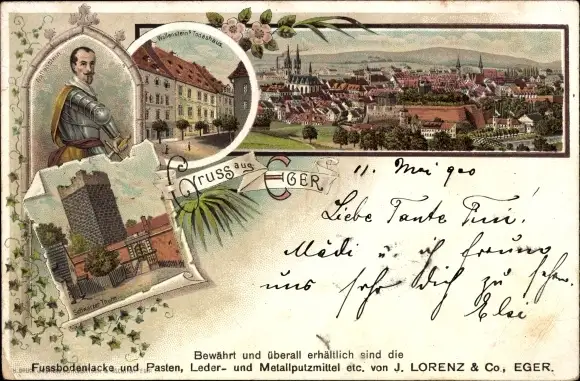 Wallenstein
Wallenstein's Todeshaus.
Gruss aus EGER.
Schwarzer Thurm
11. Mai 900
Liebe Tante Tini!
Mädi u. ich freuen
uns sehr Dich zu sehen.
Elsi
Bewährt und überall erhältlich sind die
Fussbodenlacke und Pasten, Leder- und Metallputzmittel etc. von J. LORENZ & Co, EGER.